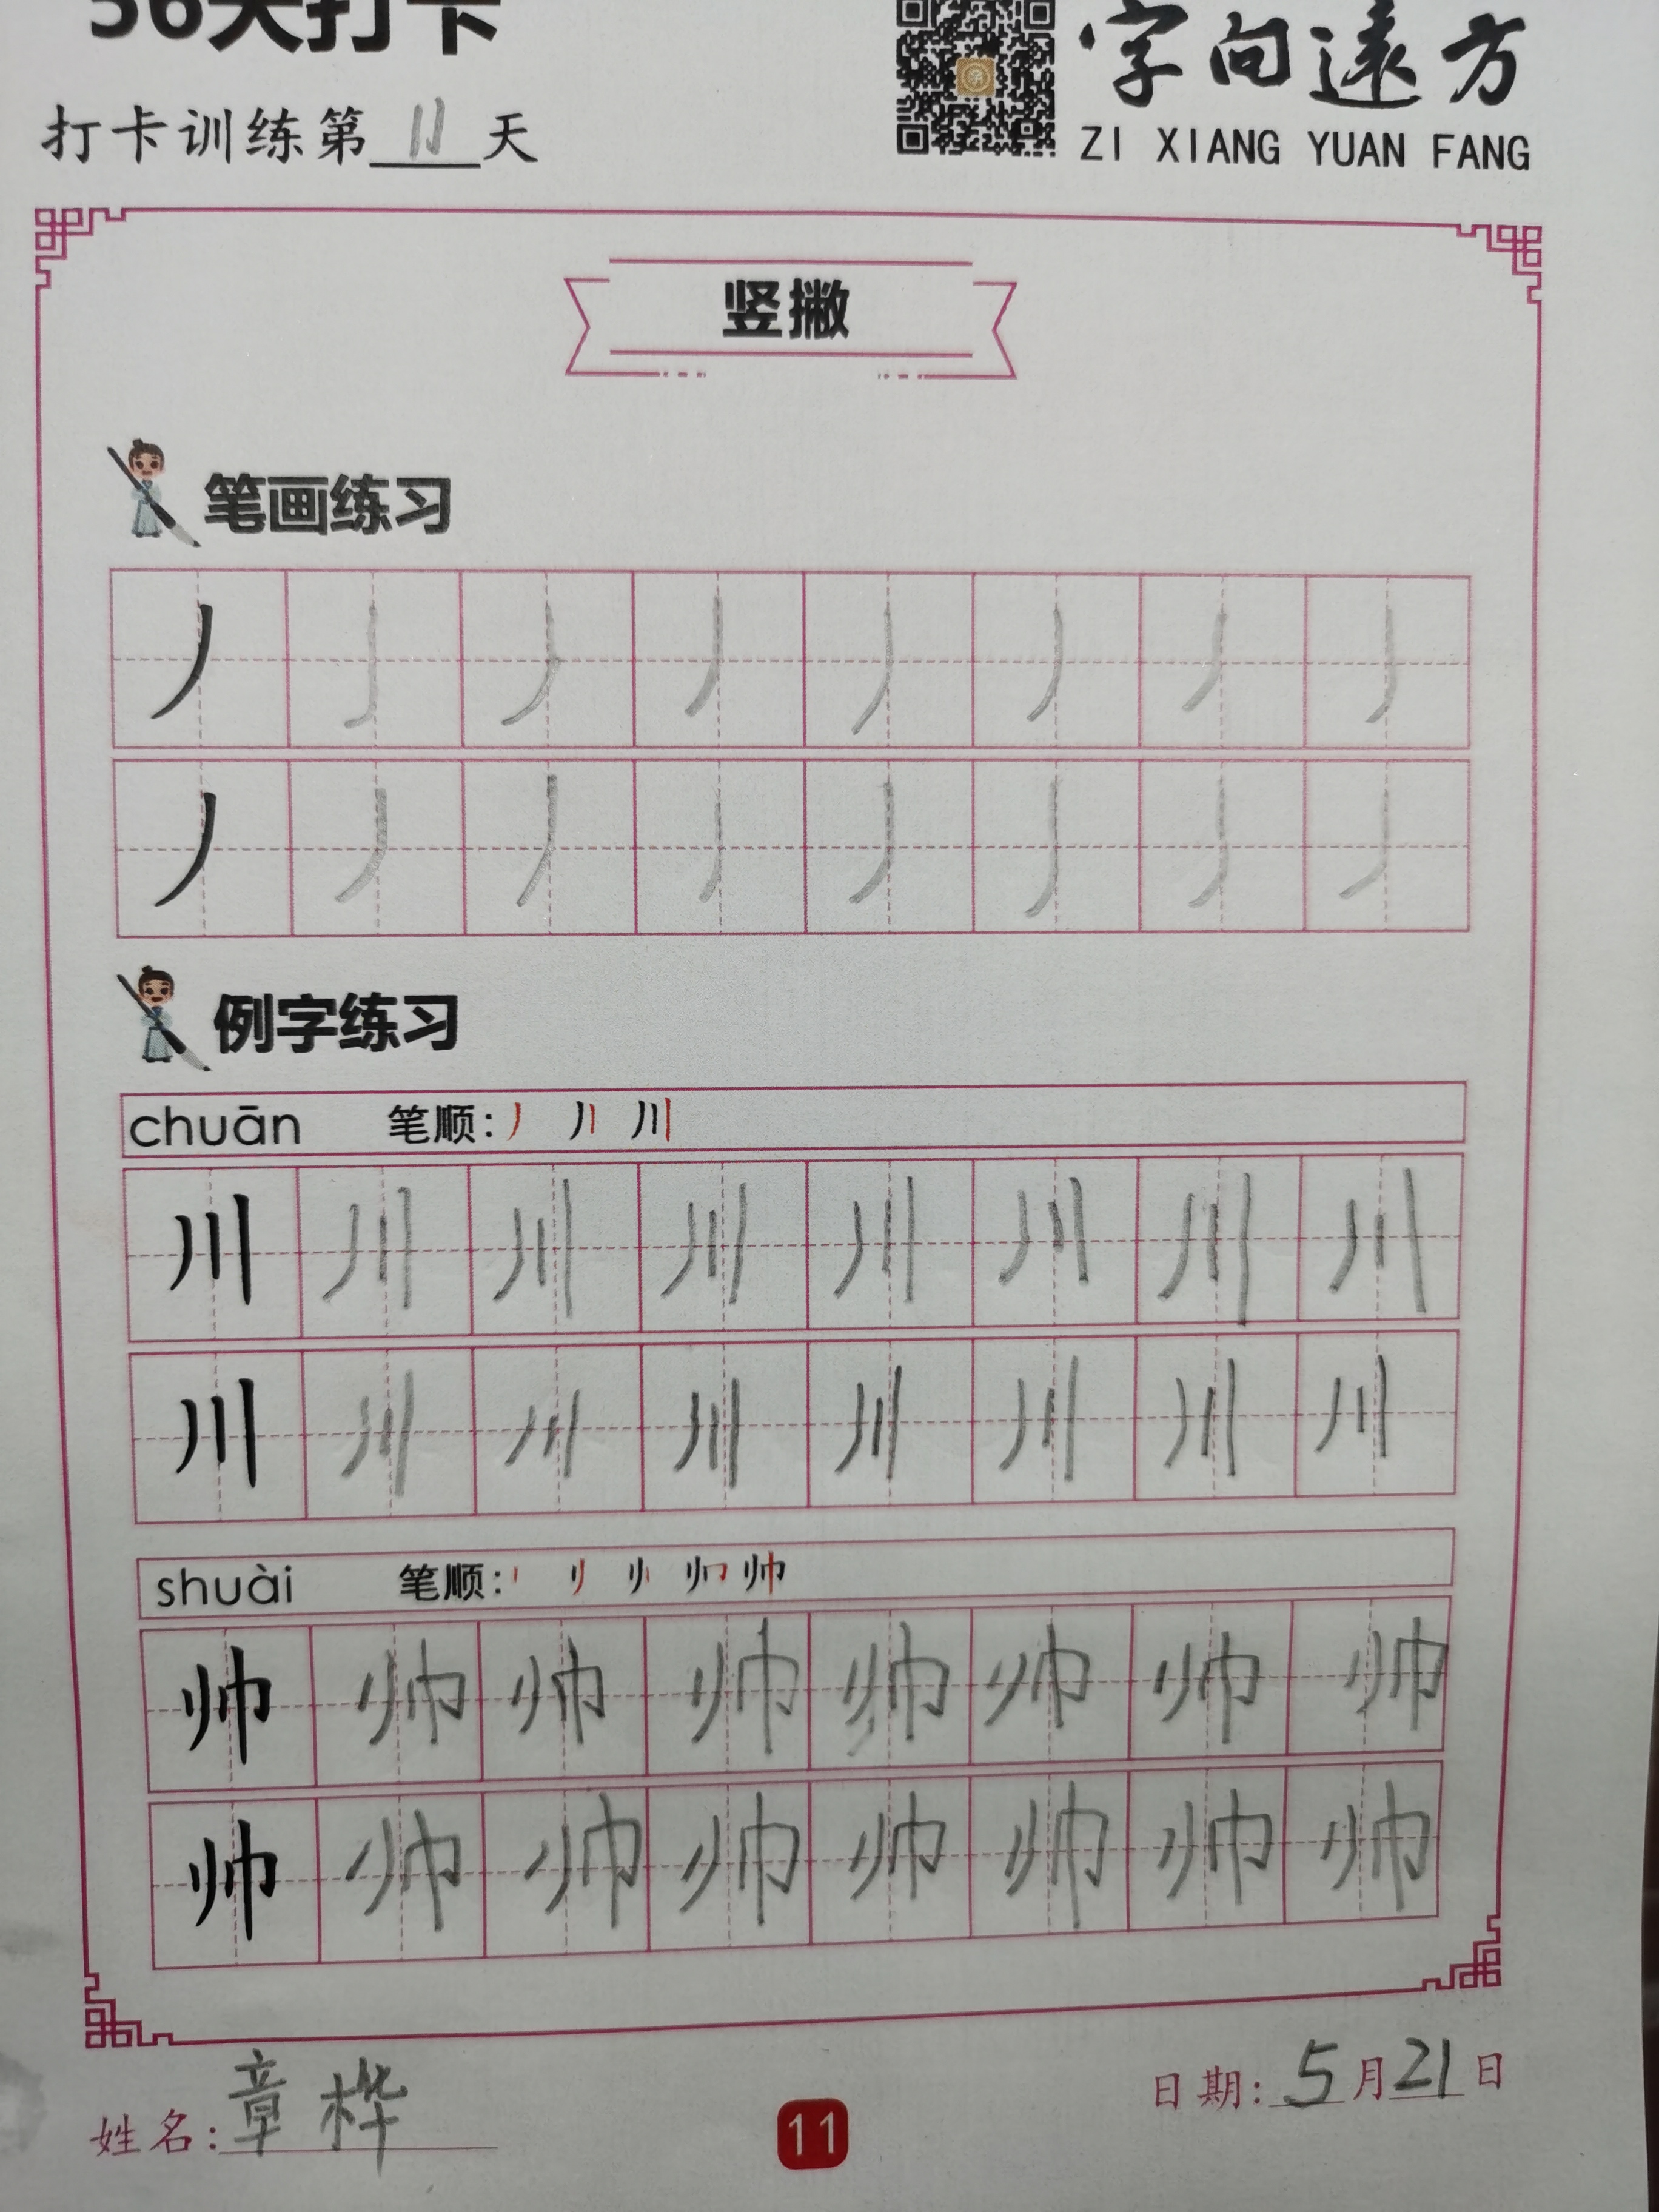 36天打卡
字向遠方
打卡训练第11天
ZI XIANG YUAN FANG
竖撇
笔画练习
丿丿丿丿丿丿丿丿
丿丿丿丿丿丿丿丿
例字练习
chuān 笔顺: 丿 川
川川川川川川川川
川川川川川川川川
shuài 笔顺: 帅
帅帅帅帅帅帅帅帅
帅帅帅帅帅帅帅帅
姓名: 章桦
日期: 5月21日
11